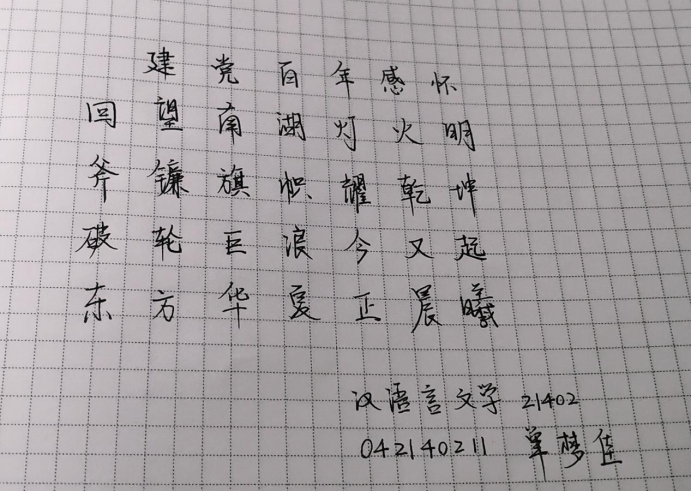 建党百年感怀
回望南湖灯火明
斧镰旗帜耀乾坤
破轮巨浪今又起
东方华夏正晨曦
汉语言文学 21402
042140211 单梦佳